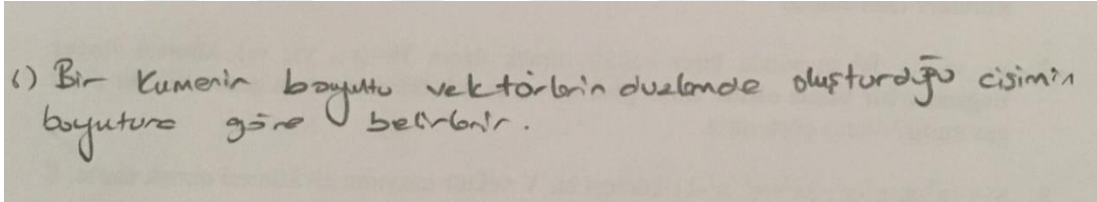 6) Bir kumenin boyutu vektörlerin duzlemde oluşturduğu cisimin
boyutuna göre belirlenir.